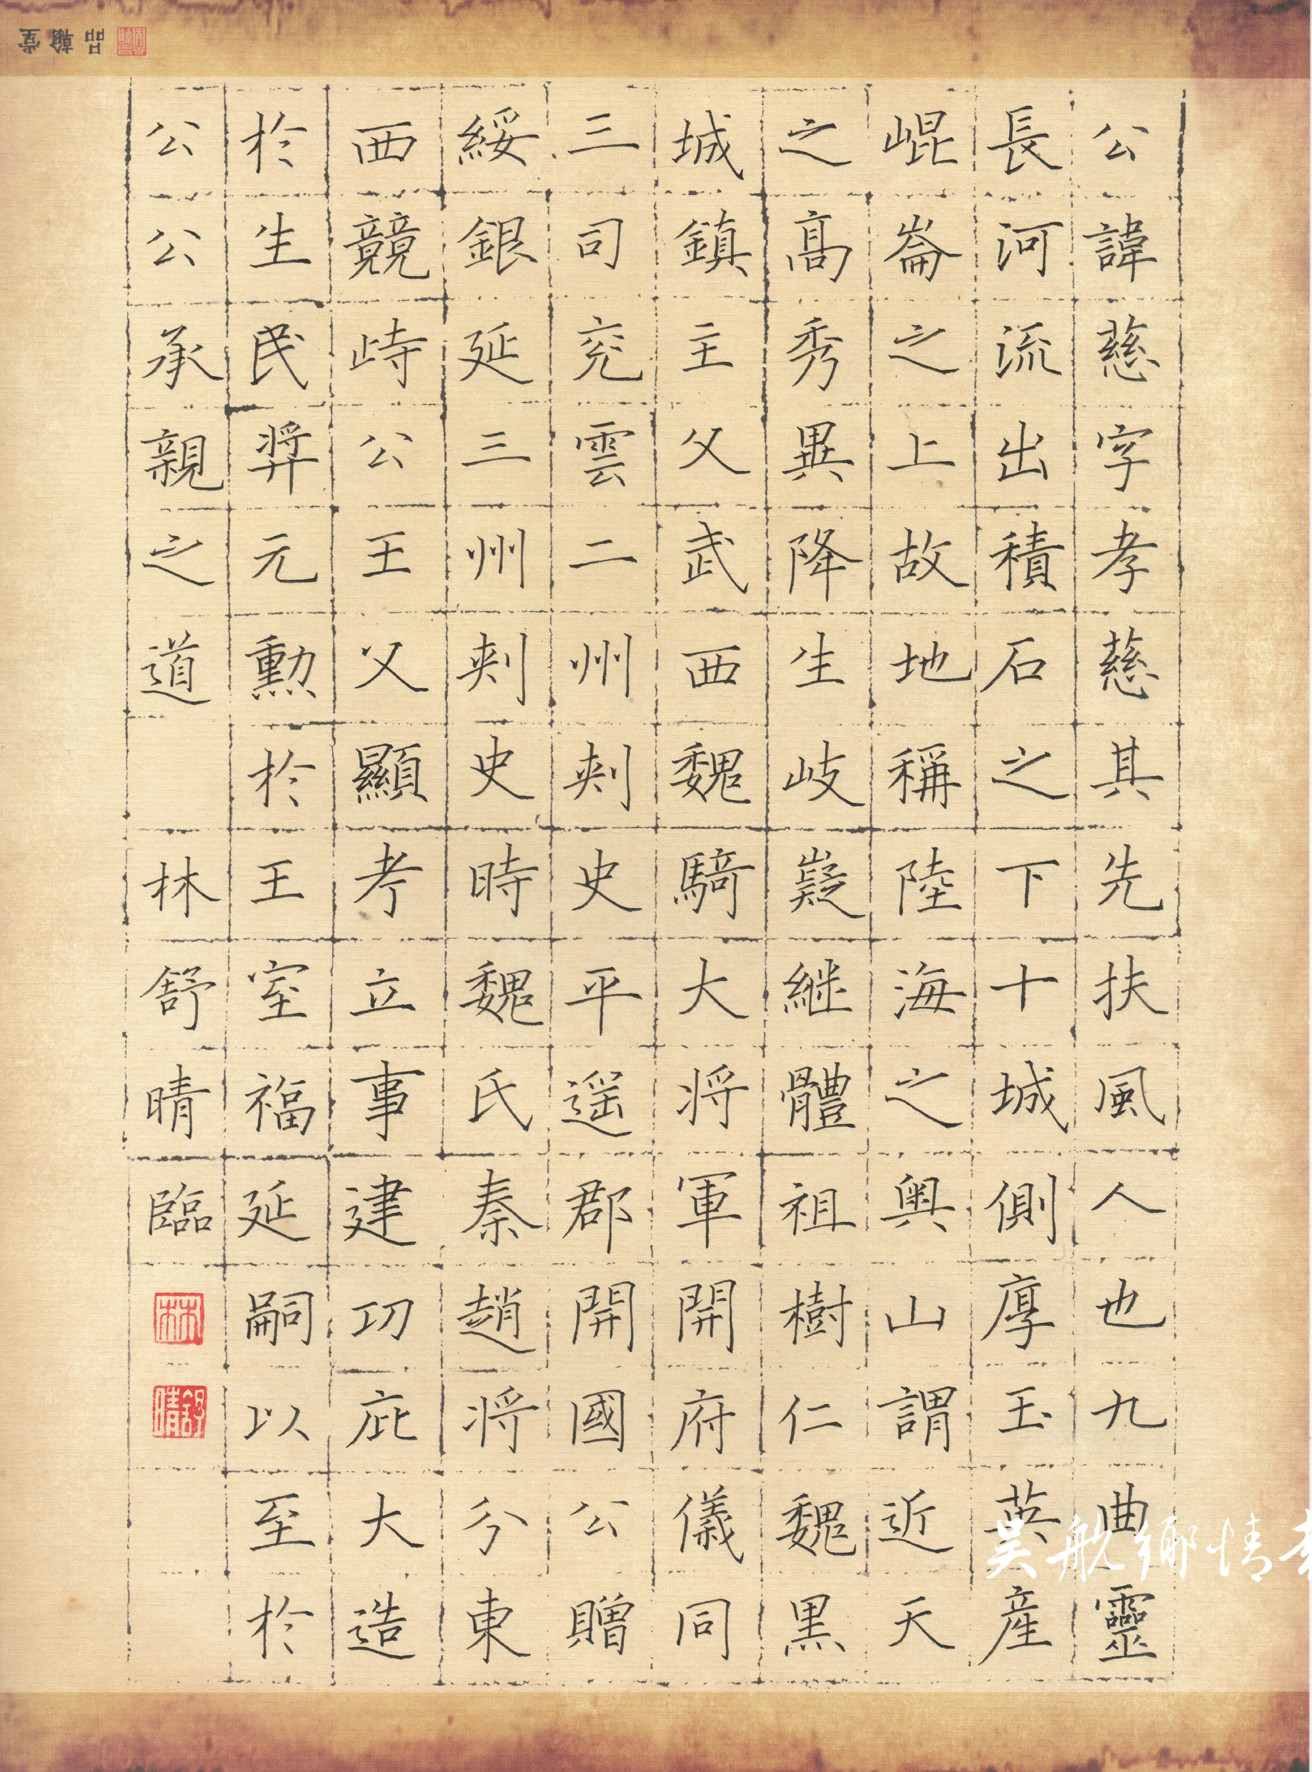 公諱慈字孝慈其先扶風人也九曲靈
長河流出積石之下十城側厚玉英産
崐崙之上故地稱陸海之奥山謂近天
之高秀異降生岐嶷継體祖樹仁魏黒
城鎮主父武西魏騎大将軍開府儀同
三司兖雲二州刾史平遥郡開國公贈
綏銀延三州刾史時魏氏秦趙将分東
西競峙公王父顯考立事建功庇大造
扵生民奨元勲扵王室福延嗣以至扵
公公承親之道
林舒晴臨
林
舒晴
品翰堂
吴航鄉情